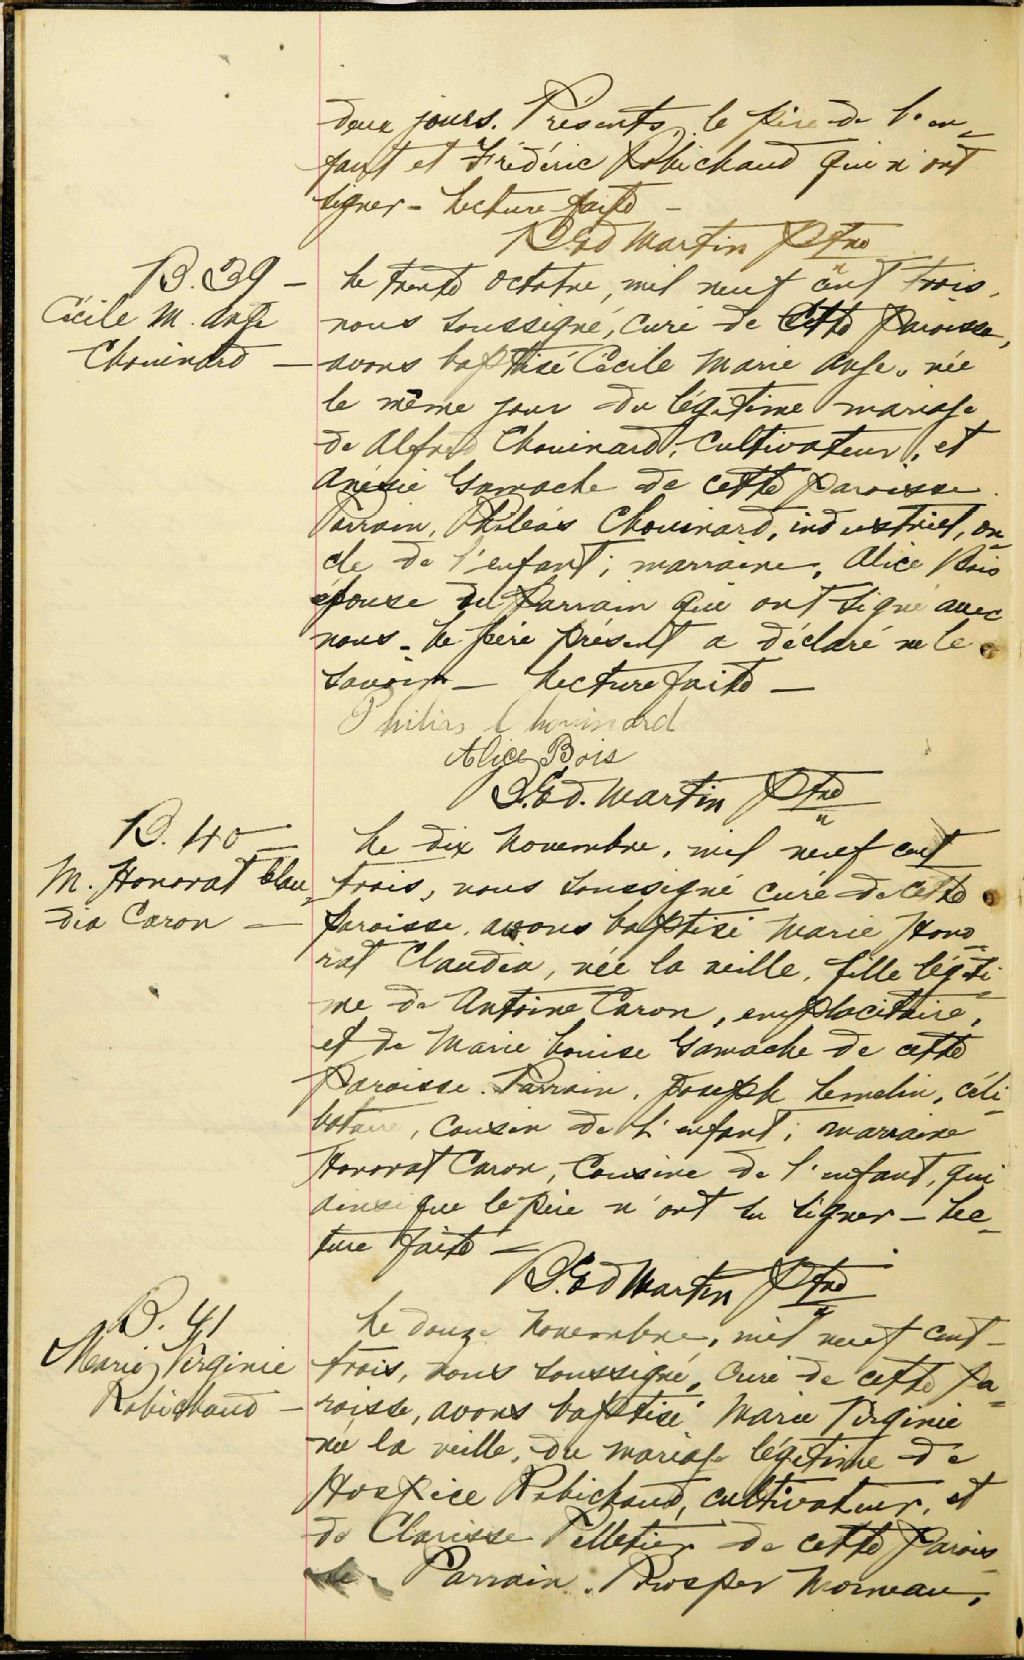 deux jours. Présents, le père de l'en-
fant et Frédéric Robichaud qui n'ont
signer - Lecture faite -
B. Ed Martin Ptre
B. 39 -
Cécile M. Ange
Chouinard -
Le trente octobre, mil neuf cent trois,
nous soussigné, curé de cette paroisse,
avons baptisé Cécile Marie Ange, née
le même jour du légitime mariage
de Alfred Chouinard, cultivateur, et
Anésie Gamache de cette paroisse.
Parrain, Philéas Chouinard, industriel, on
cle de l'enfant; marraine, Alice Bois
épouse du parrain qui ont signé avec
nous. Le père présent a déclaré ne le
savoir - Lecture faite -
Chouinard
Alice Bois
B. Ed. Martin Ptre
B. 40 -
M. Honorat Clau-
dia Caron -
Le dix Novembre, mil neuf cent
trois, nous soussigné curé de cette
paroisse, avons baptisé Marie Hono-
rat Claudia, née la veille, fille légiti-
me de Antoine Caron, emplacitaire,
et de Marie Louise Gamache de cette
Paroisse. Parrain, Joseph Lemelin, céli-
bataire, cousin de l'enfant; marraine
Honorat Caron, Cousine de l'enfant, qui
ainsi que le père n'ont su signer - Lec-
ture faite -
B. Ed Martin Ptre
B. 41
Marie Virginie
Robichaud -
Le douze Novembre, mil neuf cent-
trois, nous soussigné, curé de cette pa-
roisse, avons baptisé Marie Virginie
née la veille, du mariage légitime de
Hospice Robichaud, cultivateur, et
de Clarisse Pelletier de cette parois
se. Parrain, Prosper Morneau,